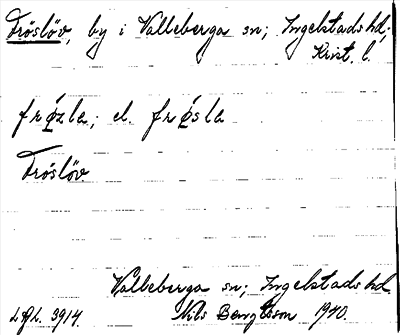 Fröslöv, by i Valleberga sn; Ingelstads hd;
Krist. l.
frǿzla; el. frǿsla
Fröslöv
Valleberga sn; Ingelstads hd
3914. Nils Bengtsson 1940.